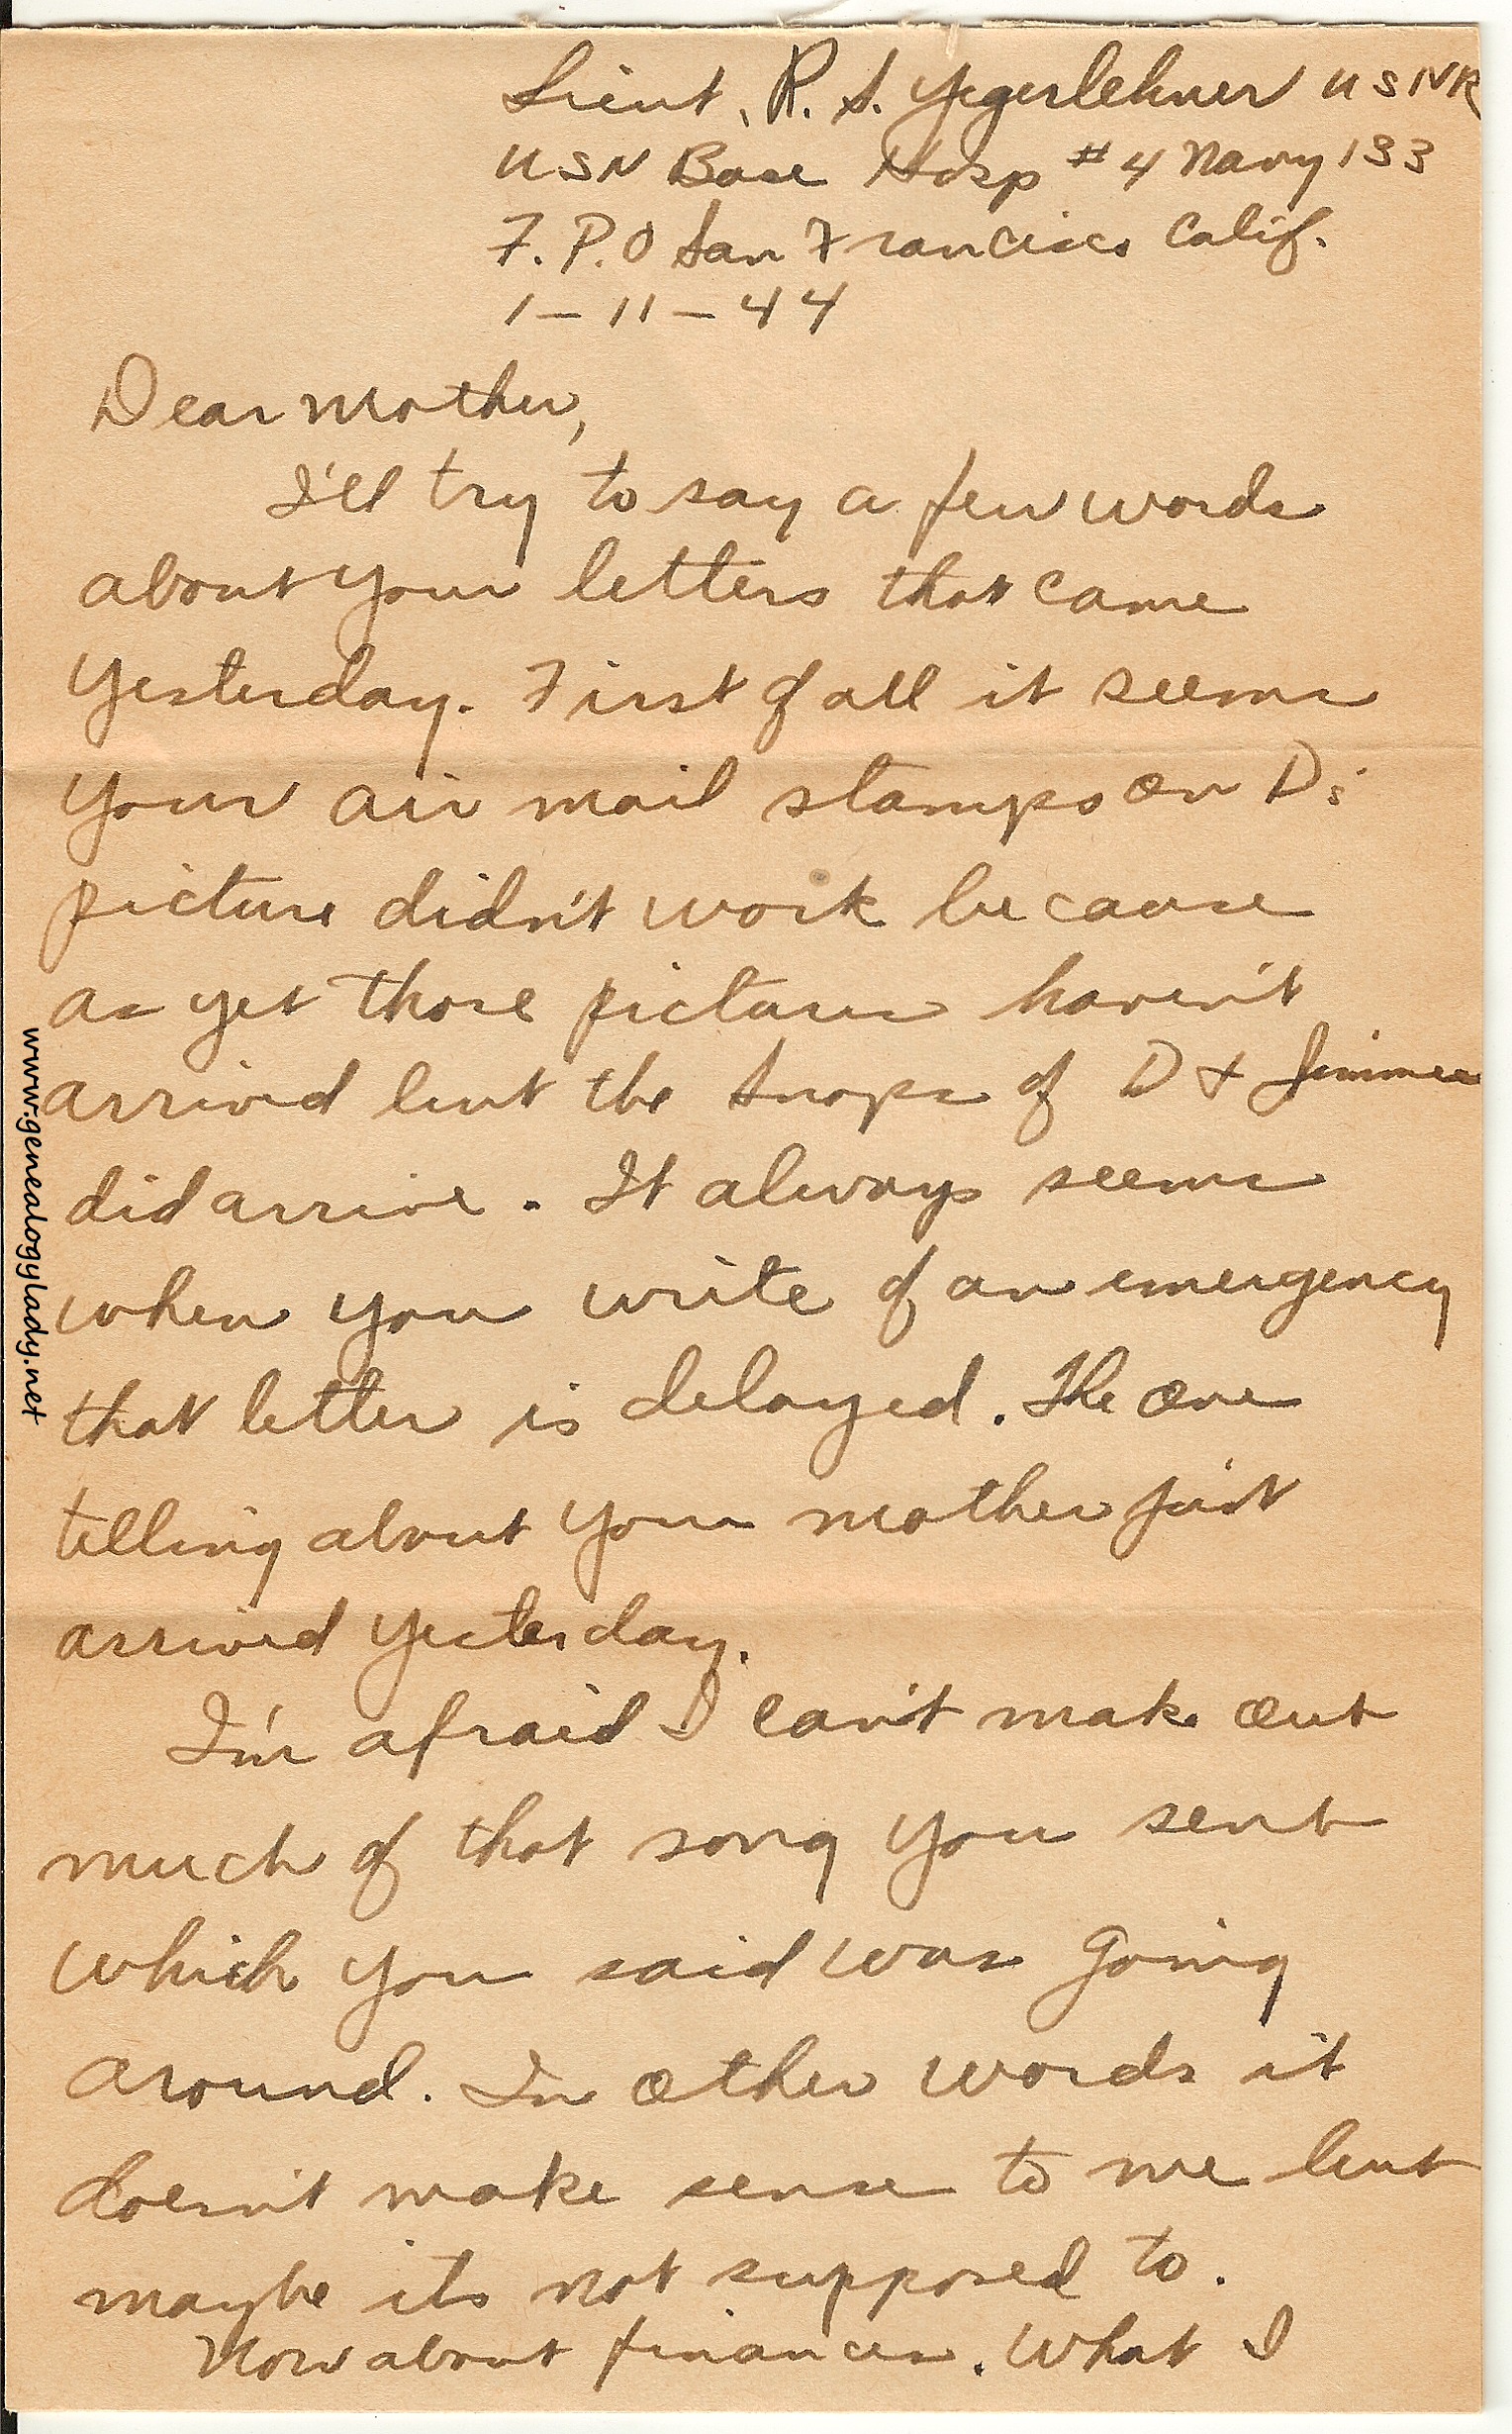 Lieut. R. S. Yegerlehner USNR
USN Base Hosp #4 Navy 133
F.P.O San Francisco Calif.
1-11-44
Dear Mother,
I'll try to say a few words
about your letters that came
yesterday. First of all it seems
your air mail stamps on D's
picture didn't work because
as yet those pictures haven't
arrived but the snaps of D &
did arrive. It always seems
when you write of an emergency
that letter is delayed. The one
telling about your mother just
arrived yesterday.
I'm afraid I can't make out
much of that song you sent
which you said was going
around. In other words it
doesn't make sense to me but
maybe its not supposed to.
Now about finances. What I
www.genealogylady.net